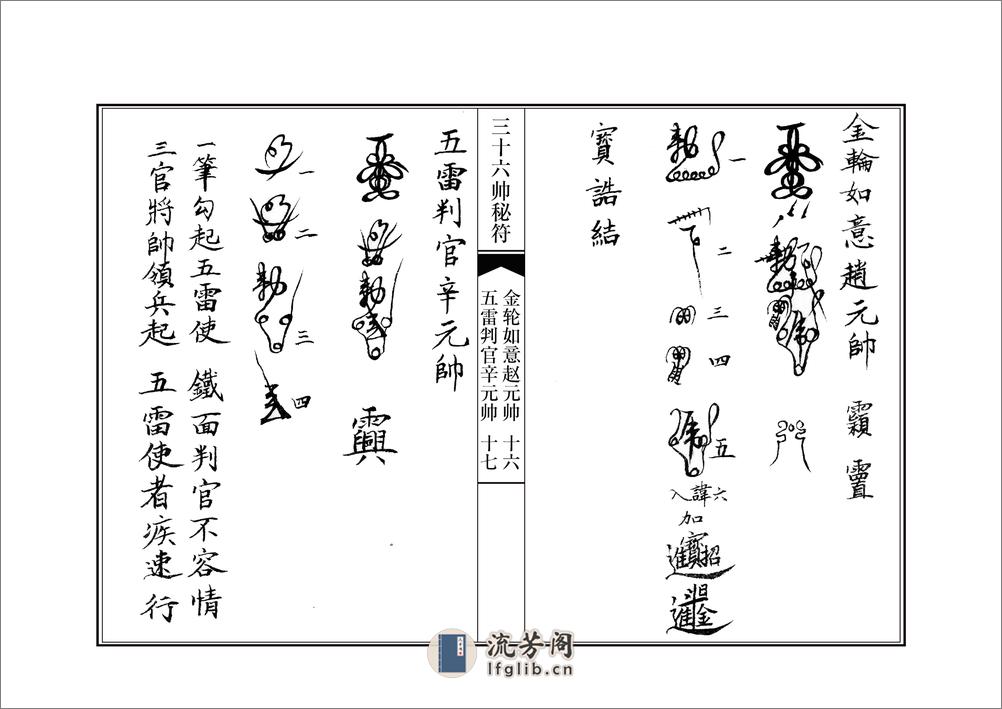 金輪如意趙元帥
一
二
三
四
五
六諱入
加
招
寶誥結
三十六帅秘符
金轮如意赵元帅 十六
五雷判官辛元帅 十七
五雷判官辛元帥
一
二
三
四
一筆勾起五雷使 鐵面判官不容情
三官將帥領兵起 五雷使者疾速行
流芳阁
lfglib.cn